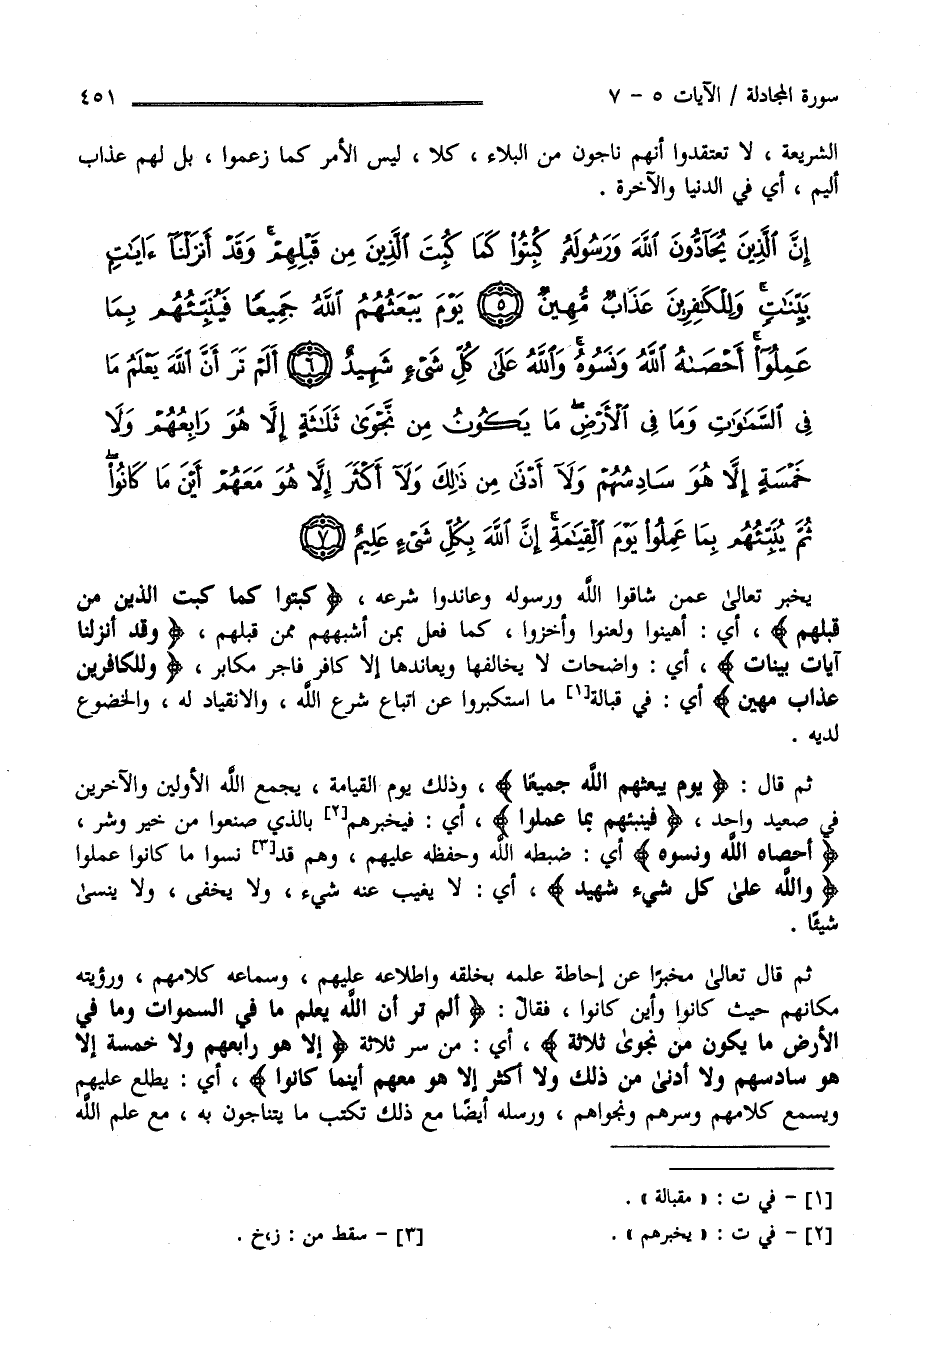 سورة المجادلة / الآيات ٥ - ٧ ٤٥١
الشريعة ، لا تعتقدوا أنهم ناجون من البلاء ، كلا ، ليس الأمر كما زعموا ، بل لهم عذاب
أليم ، أي في الدنيا والآخرة .
إِنَّ ٱلَّذِينَ يُحَآدُّونَ ٱللَّهَ وَرَسُولَهُۥ كُبِتُوا۟ كَمَا كُبِتَ ٱلَّذِينَ مِن قَبْلِهِمْ ۚ وَقَدْ أَنزَلْنَآ ءَايَٰتٍۭ
بَيِّنَٰتٍ ۚ وَلِلْكَٰفِرِينَ عَذَابٌ مُّهِينٌ ٥ يَوْمَ يَبْعَثُهُمُ ٱللَّهُ جَمِيعًا فَيُنَبِّئُهُم بِمَا
عَمِلُوٓا۟ ۚ أَحْصَىٰهُ ٱللَّهُ وَنَسُوهُ ۚ وَٱللَّهُ عَلَىٰ كُلِّ شَىْءٍ شَهِيدٌ ٦ أَلَمْ تَرَ أَنَّ ٱللَّهَ يَعْلَمُ مَا
فِى ٱلسَّمَٰوَٰتِ وَمَا فِى ٱلْأَرْضِ ۖ مَا يَكُونُ مِن نَّجْوَىٰ ثَلَٰثَةٍ إِلَّا هُوَ رَابِعُهُمْ وَلَا
خَمْسَةٍ إِلَّا هُوَ سَادِسُهُمْ وَلَآ أَدْنَىٰ مِن ذَٰلِكَ وَلَآ أَكْثَرَ إِلَّا هُوَ مَعَهُمْ أَيْنَ مَا كَانُوا۟ ۖ
ثُمَّ يُنَبِّئُهُم بِمَا عَمِلُوا۟ يَوْمَ ٱلْقِيَٰمَةِ ۚ إِنَّ ٱللَّهَ بِكُلِّ شَىْءٍ عَلِيمٌ ٧
يخبر تعالىٰ عمن شاقوا اللَّه ورسوله وعاندوا شرعه ، ﴿ كبتوا كما كبت الذين من
قبلهم ﴾ ، أي : أهينوا ولعنوا وأخزوا ، كما فعل بمن أشبههم ممن قبلهم ، ﴿ وقد أنزلنا
آيات بينات ﴾ ، أي : واضحات لا يخالفها ويعاندها إلا كافر فاجر مكابر ، ﴿ وللكافرين
عذاب مهين ﴾ أي : في قبالة[١] ما استكبروا عن اتباع شرع اللَّه ، والانقياد له ، والخضوع
لديه .
ثم قال : ﴿ يوم يبعثهم اللَّه جميعًا ﴾ ، وذلك يوم القيامة ، يجمع اللَّه الأولين والآخرين
في صعيد واحد ، ﴿ فينبئهم بما عملوا ﴾ ، أي : فيخبرهم[٢] بالذي صنعوا من خير وشر ،
﴿ أحصاه اللَّه ونسوه ﴾ أي : ضبطه اللَّه وحفظه عليهم ، وهم قد[٣] نسوا ما كانوا عملوا
﴿ واللَّه علىٰ كل شيء شهيد ﴾ ، أي : لا يغيب عنه شيء ، ولا يخفى ، ولا ينسىٰ
شيئًا .
ثم قال تعالىٰ مخبرًا عن إحاطة علمه بخلقه واطلاعه عليهم ، وسماعه كلامهم ، ورؤيته
مكانهم حيث كانوا وأين كانوا ، فقال : ﴿ ألم تر أن اللَّه يعلم ما في السموات وما في
الأرض ما يكون من نجوىٰ ثلاثة ﴾ ، أي : من سر ثلاثة ﴿ إلا هو رابعهم ولا خمسة إلا
هو سادسهم ولا أدنىٰ من ذلك ولا أكثر إلا هو معهم أينما كانوا ﴾ ، أي : يطلع عليهم
ويسمع كلامهم وسرهم ونجواهم ، ورسله أيضًا مع ذلك تكتب ما يتناجون به ، مع علم اللَّه
[١] - في ت : « مقبالة » .
[٢] - في ت : « يخبرهم » . [٣] - سقط من : ز،خ .